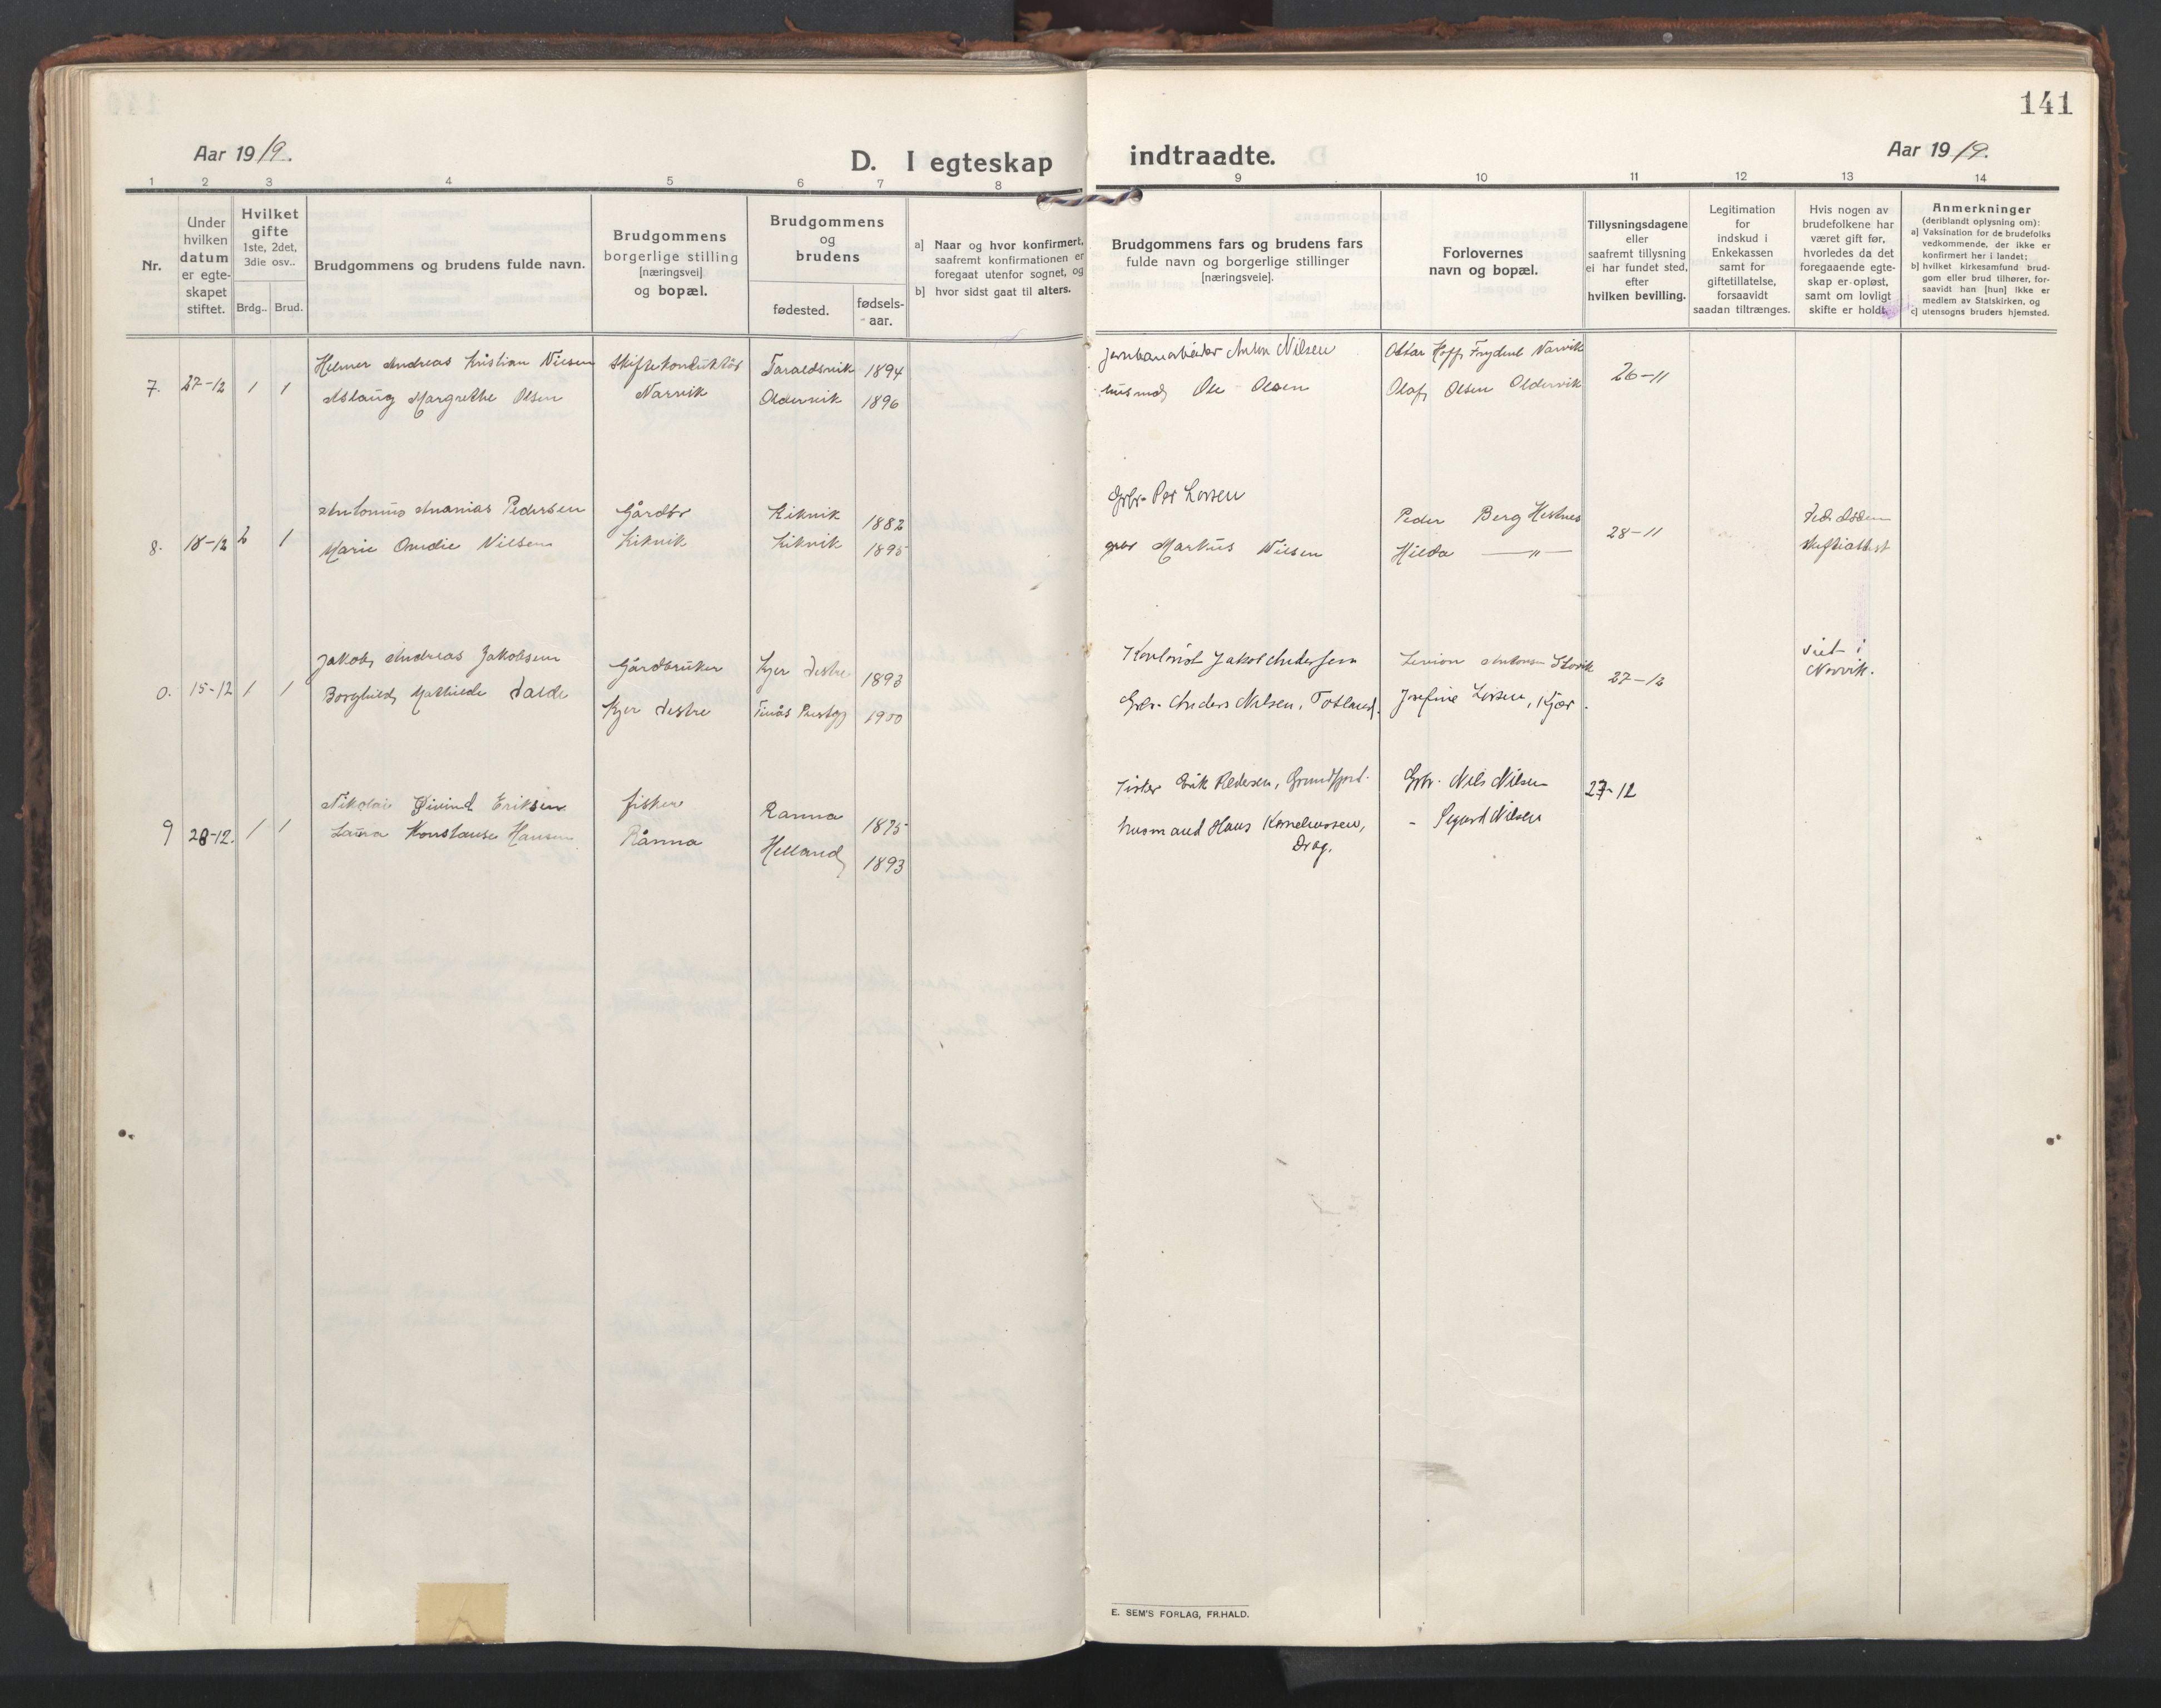 141
Aar 1919.
D. I egteskap indtraadte.
Aar 1919.
1 2 3 4 5 6 7 8 9 10 11 12 13 14
Nr.
Under
hvilken
datum
er egte-
skapet
stiftet.
Hvilket
gifte
1ste, 2det,
3die osv..
Brdg.. Brud.
Brudgommens og brudens fulde navn.
Brudgommens
borgerlige stilling
[næringsvei]
og bopæl.
Brudgommens
og
brudens
fødested.
fødsels-
aar.
a) Naar og hvor konfirmert,
saafremt konfirmationen er
foregaat utenfor sognet, og
b) hvor sidst gaat til alters.
Brudgommens fars og brudens fars
fulde navn og borgerlige stillinger
[næringsveie].
Forlovernes
navn og bopæl.
Tillysningsdagene
eller
saafremt tillysning
ei har fundet sted,
efter
hvilken bevilling.
Legitimation
for
indskud i
Enkekassen
samt for
giftetillatelse,
forsaavidt
saadan tiltrænges.
Hvis nogen av
brudefolkene har
været gift før,
hvorledes da det
foregaaende egte-
skap er opløst,
samt om lovligt
skifte er holdt.
Anmerkninger
(deriblandt oplysning om):
a) Vaksination for de brudefolks
vedkommende, der ikke er
konfirmert her i landet;
b) hvilket kirkesamfund brud-
gom eller brud tilhører, for-
saavidt han [hun] ikke er
medlem av Statskirken, og
c) utensogns bruders hjemsted.
7. 27-12 1 1
Helmer Andreas Kristian Nilsen Skiftekonduktør Taraldsvik 1894 jernbanearbeider Anton Nilsen Narvik
Aslaug Margrethe Olsen Narvik Oldervik 1896 husmd Ole Olsen Olaf Olsen Oldervik 26-11
8. 18-12 2 1
Antonius Ananias Pedersen Gårdbr Kikvik 1882 Grbr. Per Larsen Peder Berg Hestnes
Marie Nilsen Kikvik Kikvik 1895 grbr Markus Nilsen Hilda —"— 28-11 Ved døden skifteattest
0. 15-12 1 1
Jakob Andreas Jakobsen Gårdbruker Kjær Vestre 1893 Jakob Andersen Antonsen
Borghild Mathilde Kjær Vestre 1900 Grbr. Anders Nilsen, Josefine Larsen, Kjær. 27-12 viet i Narvik.
9 28-12. 1 1
Nikolai Øivind Eriksen fisker Ranna 1895 Fisker Erik Pedersen, Grundfjord. Grbr. Nils Nilsen
Laura Konstanse Hansen Rånna Helland 1893 husmand Hans Korneliussen, Drag. - Sigurd Nilsen 27-12
E. SEM'S FORLAG, FR.HALD.